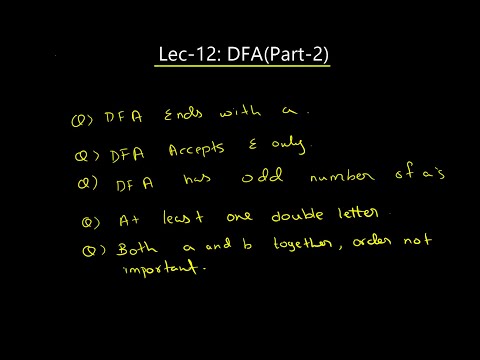 Lec-12: DFA(Part-2)
Q) DFA Ends with a.
Q) DFA Accepts ε only.
Q) DFA has odd number of a's
Q) At least one double letter.
Q) Both a and b together, order not
important.